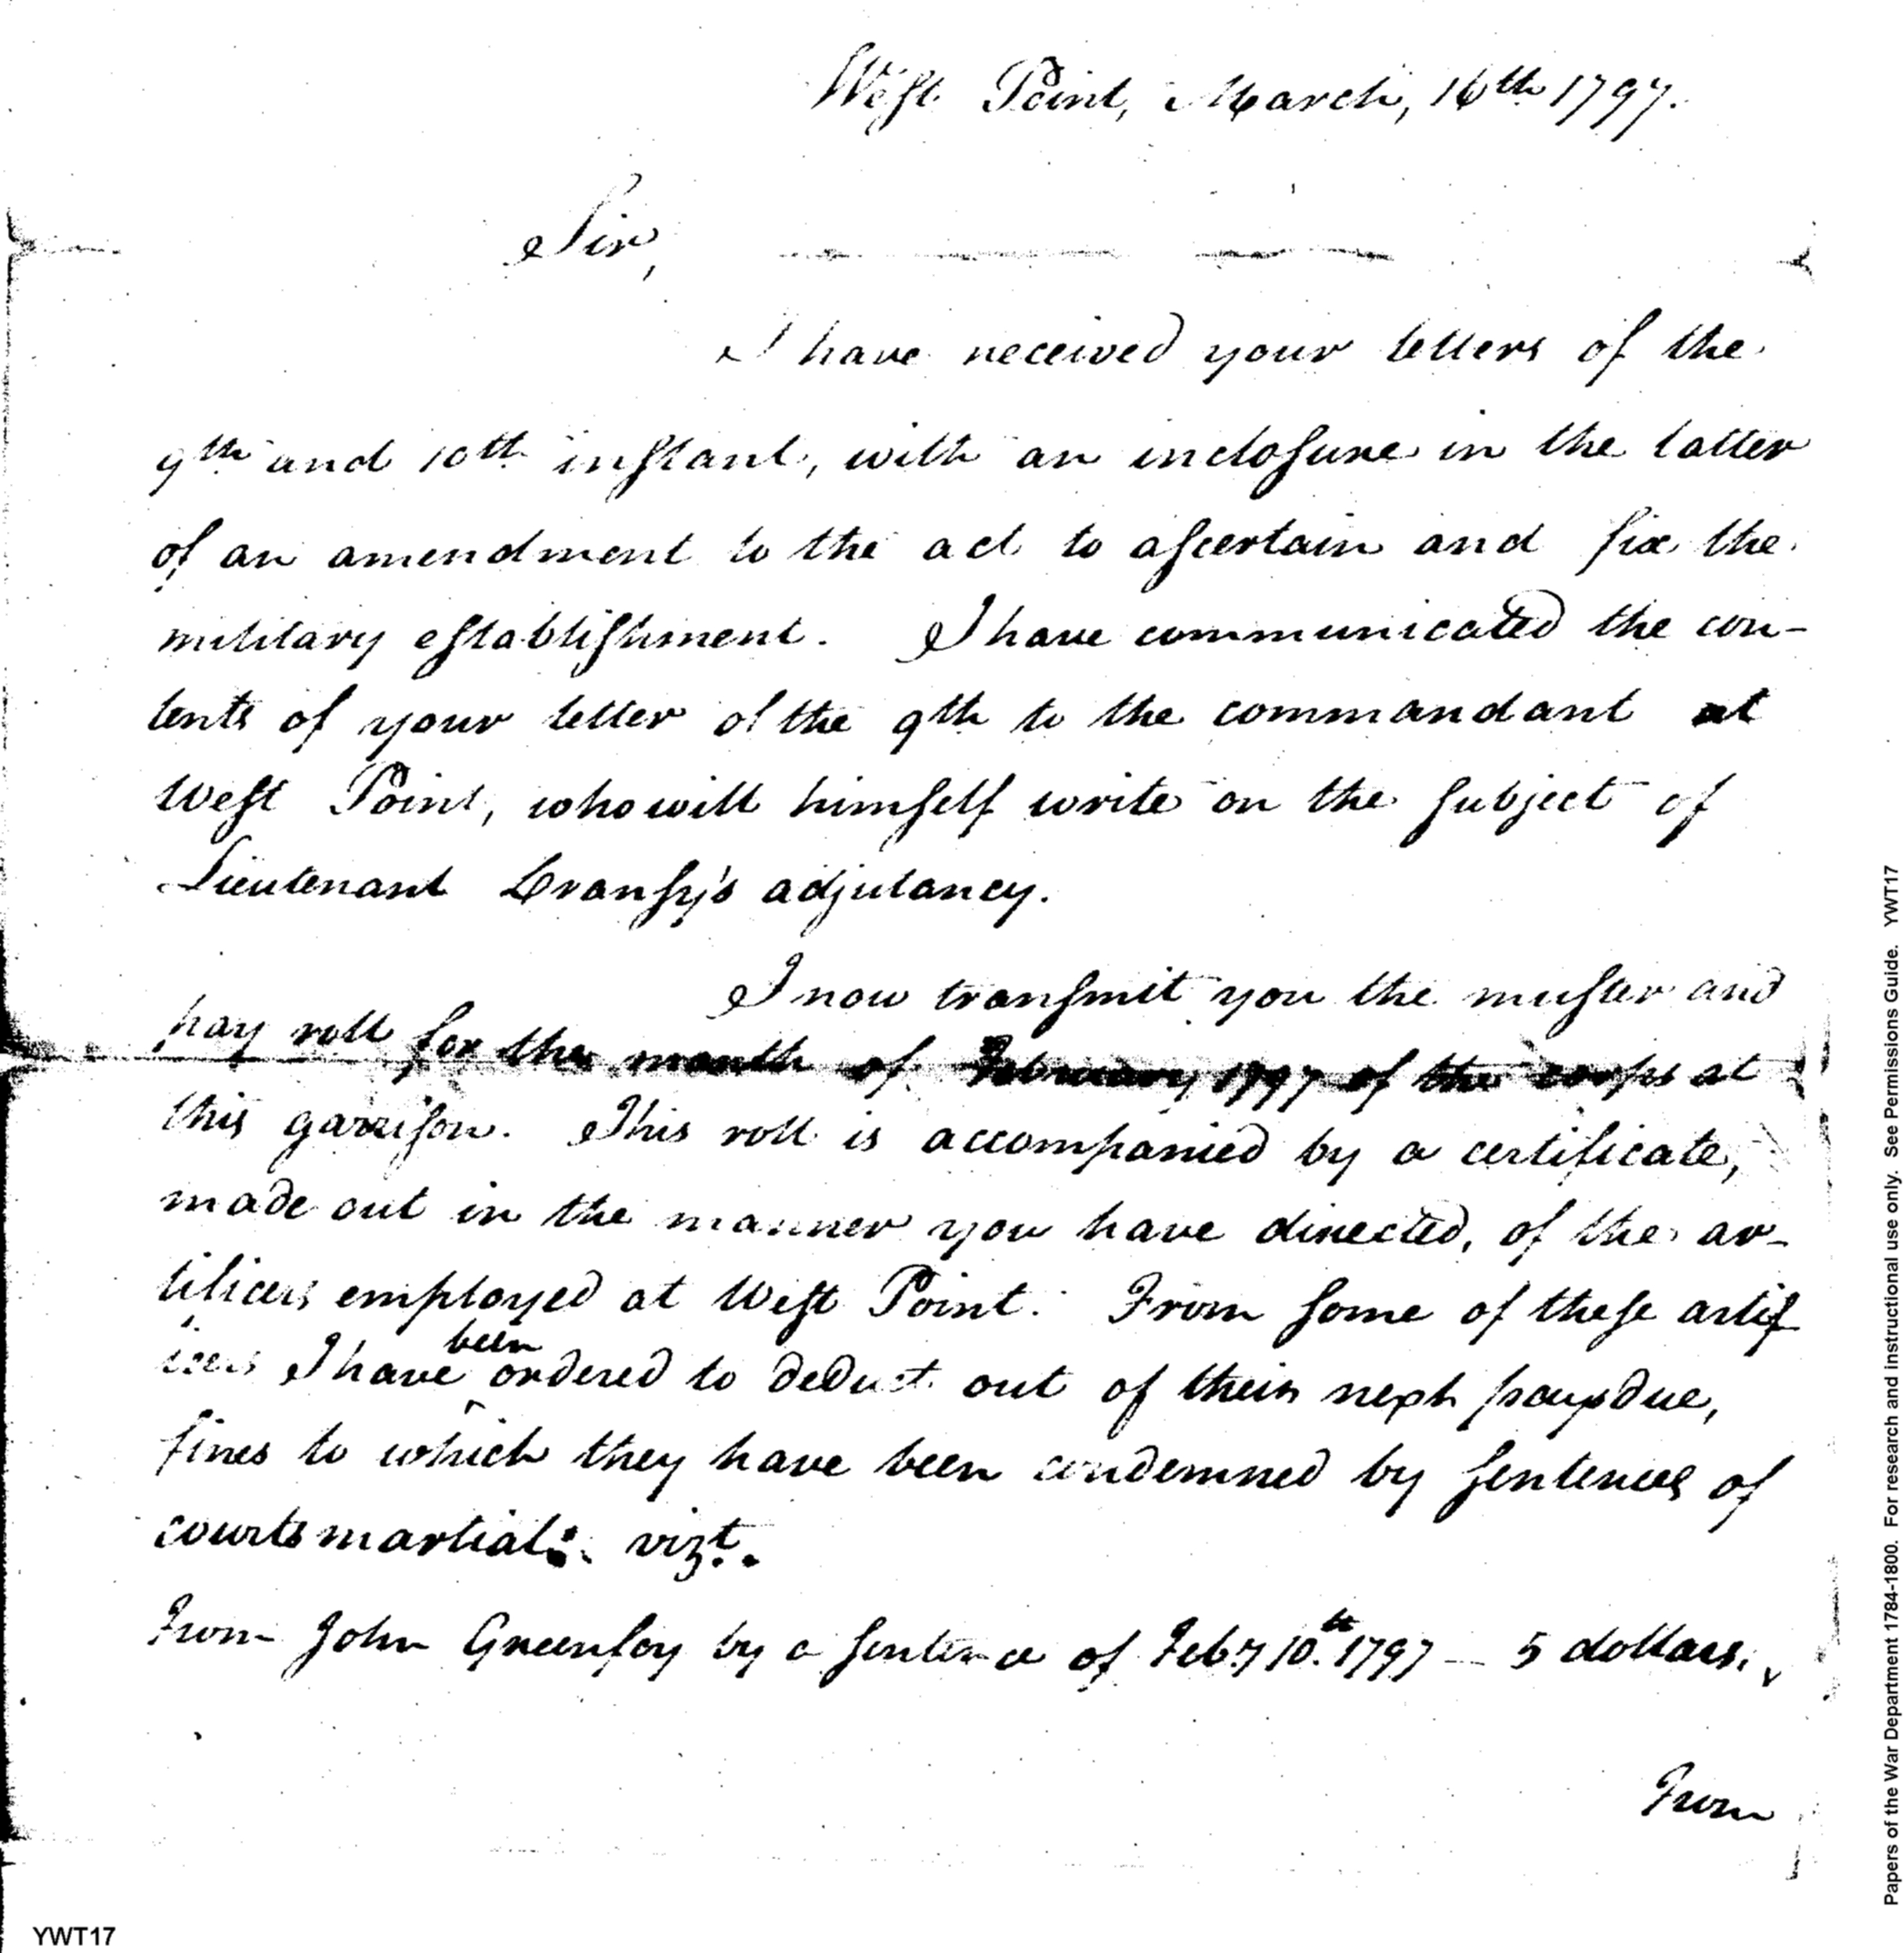 West Point, March, 16th 1797.
Sir,
I have received your letters of the
9th and 10th instant, with an inclosure in the latter
of an amendment to the act to ascertain and fix the
military establishment. I have communicated the con-
tents of your letter of the 9th to the commandant at
West Point, who will himself write on the subject of
Lieutenant adjutancy.
I now transmit you the muster and
pay roll for the month of February 1797 of the corps at
this garrison. This roll is accompanied by a certificate,
made out in the manner you have directed, of the ar-
tificers employed at West Point. From some of these artif
icers I have been ordered to deduct out of their next pays due,
fines to which they have been condemned by sentences of
courts martial: vizt.
From John Greenfoy by a sentence of Feby 10.th 1797 — 5 dollars.
From
YWT17
Papers of the War Department 1784-1800. For research and instructional use only. See Permissions Guide. YWT17